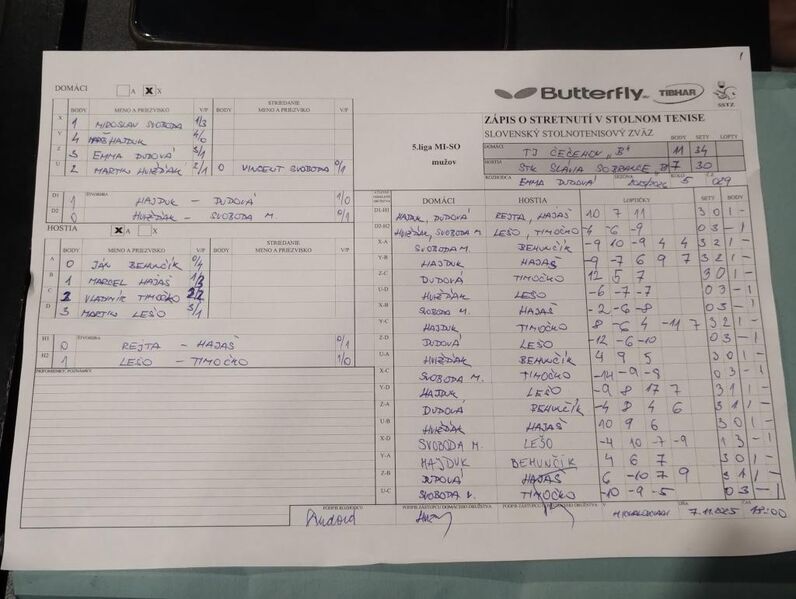 1
DOMÁCI A X X
BODY MENO A PRIEZVISKO V/P BODY STRIEDANIE MENO A PRIEZVISKO V/P
X 1 MIROSLAV SVOBODA 1/3
Y 4 HAJDUK 4/0
Z 3 EMMA DUDOVÁ 3/1
U 2 MARTIN HVIŽĎÁK 2/1 0 VINCENT SVOBODA 0/1
D1 ŠTVORHRA HAJDUK - DUDOVÁ 1/0
D2 0 HVIŽĎÁK - SVOBODA M. 0/1
HOSTIA X A X
BODY MENO A PRIEZVISKO V/P BODY STRIEDANIE MENO A PRIEZVISKO V/P
A 0 JÁN BEHUNČÍK 0/4
B 1 MARCEL HAJAŠ 1/3
C 2 VLADIMÍR TIMOČKO 2/2
D 3 MARTIN LEŠO 3/1
H1 0 ŠTVORHRA REJTA - HAJAŠ 0/1
H2 1 LEŠO - TIMOČKO 1/0
PRIPOMIENKY, POZNÁMKY
Butterfly TIBHAR SSTZ
5.liga MI-SO mužov
ZÁPIS O STRETNUTÍ V STOLNOM TENISE
SLOVENSKÝ STOLNOTENISOVÝ ZVÄZ BODY SETY LOPTY
DOMÁCI TJ ČEČEHOV "B" 11 34
HOSTIA STK SLAVIA SOBRANCE "B" 7 30
ROZHODCA EMMA DUDOVÁ SEZÓNA 2025/2026 KOLO 5 029
DOMÁCI HOSTIA LOPTIČKY SETY BODY
D1-H1 HAJDUK, DUDOVÁ REJTA, HAJAŠ 10 7 11 3 0 1 -
D2-H2 HVIŽĎÁK, SVOBODA M. LEŠO, TIMOČKO -4 -6 -9 0 3 - 1
X-A SVOBODA M. BEHUNČÍK -9 10 -9 4 4 3 2 1 -
Y-B HAJDUK HAJAŠ -9 -7 6 9 7 3 2 1 -
Z-C DUDOVÁ TIMOČKO 12 5 7 3 0 1 -
U-D HVIŽĎÁK LEŠO -6 -7 -7 0 3 - 1
X-B SVOBODA M. HAJAŠ -2 -6 -8 0 3 - 1
Y-C HAJDUK TIMOČKO 8 -6 4 -11 7 3 2 1 -
Z-D DUDOVÁ LEŠO -12 -6 -10 0 3 - 1
U-A HVIŽĎÁK BEHUNČÍK 4 9 5 3 0 1 -
X-C SVOBODA M. TIMOČKO -14 -9 -8 0 3 - 1
Y-D HAJDUK LEŠO -9 8 17 7 3 1 1 -
Z-A DUDOVÁ BEHUNČÍK -4 8 4 6 3 1 1 -
U-B HVIŽĎÁK HAJAŠ 10 9 6 3 0 1 -
X-D SVOBODA M. LEŠO -4 10 -7 -9 1 3 - 1
Y-A HAJDUK BEHUNČÍK 4 6 7 3 0 1 -
Z-B DUDOVÁ HAJAŠ 6 -10 7 9 3 1 1 -
U-C SVOBODA V. TIMOČKO -10 -9 -5 0 3 - 1
PODPIS ROZHODCU PODPIS ZÁSTUPCU DOMÁCEHO DRUŽSTVA PODPIS ZÁSTUPCU HOSŤUJÚCEHO DRUŽSTVA V DŇA
Dudová MICHALOVCIACH 7.11.2025 18:00